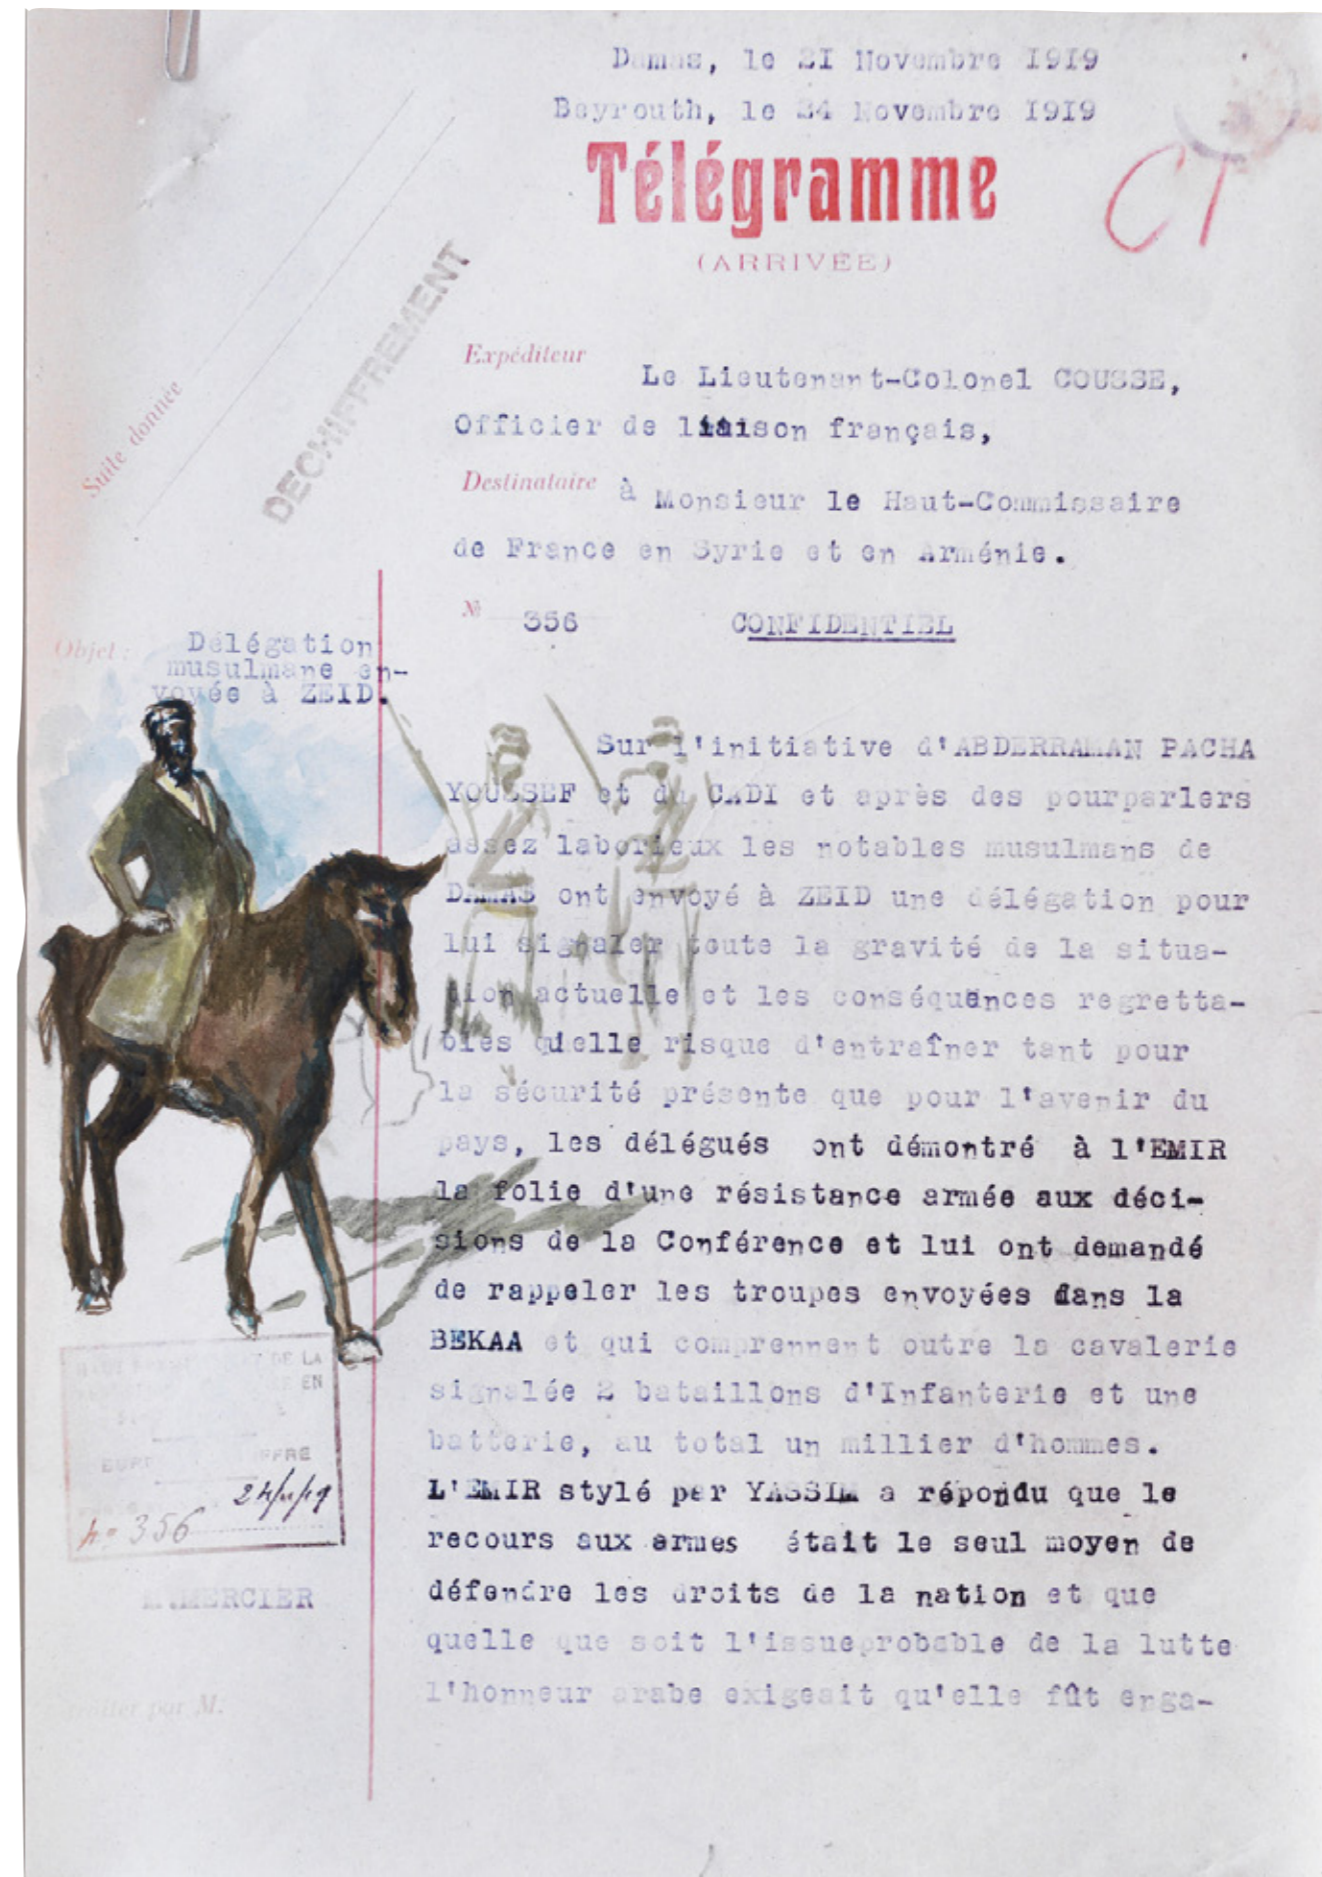 Damas, le 21 Novembre 1919
Beyrouth, le 24 Novembre 1919
Télégramme
(ARRIVÉE)
C1
Suite donnée
DECHIFFREMENT
Expéditeur
Le Lieutenant-Colonel COUSSE,
Officier de liaison français,
Destinataire
à Monsieur le Haut-Commissaire
de France en Syrie et en Arménie.
№ 356 CONFIDENTIEL
Objet : Délégation
musulmane en-
voyée à ZEID.
Sur l'initiative d'ABDERRAMAN PACHA
YOUSSEF et du CADI et après des pourparlers
assez laborieux les notables musulmans de
DAMAS ont envoyé à ZEID une délégation pour
lui signaler toute la gravité de la situa-
tion actuelle et les conséquences regretta-
bles qu'elle risque d'entraîner tant pour
la sécurité présente que pour l'avenir du
pays, les délégués ont démontré à l'EMIR
la folie d'une résistance armée aux déci-
sions de la Conférence et lui ont demandé
de rappeler les troupes envoyées dans la
BEKAA et qui comprennent outre la cavalerie
signalée 2 bataillons d'Infanterie et une
batterie, au total un millier d'hommes.
L'EMIR stylé par YASSIM a répondu que le
recours aux armes était le seul moyen de
défendre les droits de la nation et que
quelle que soit l'issueprobable de la lutte
l'honneur arabe exigeait qu'elle fût enga-
DE LA
EN
24/11/19
n° 356
M.MERCIER
par M.